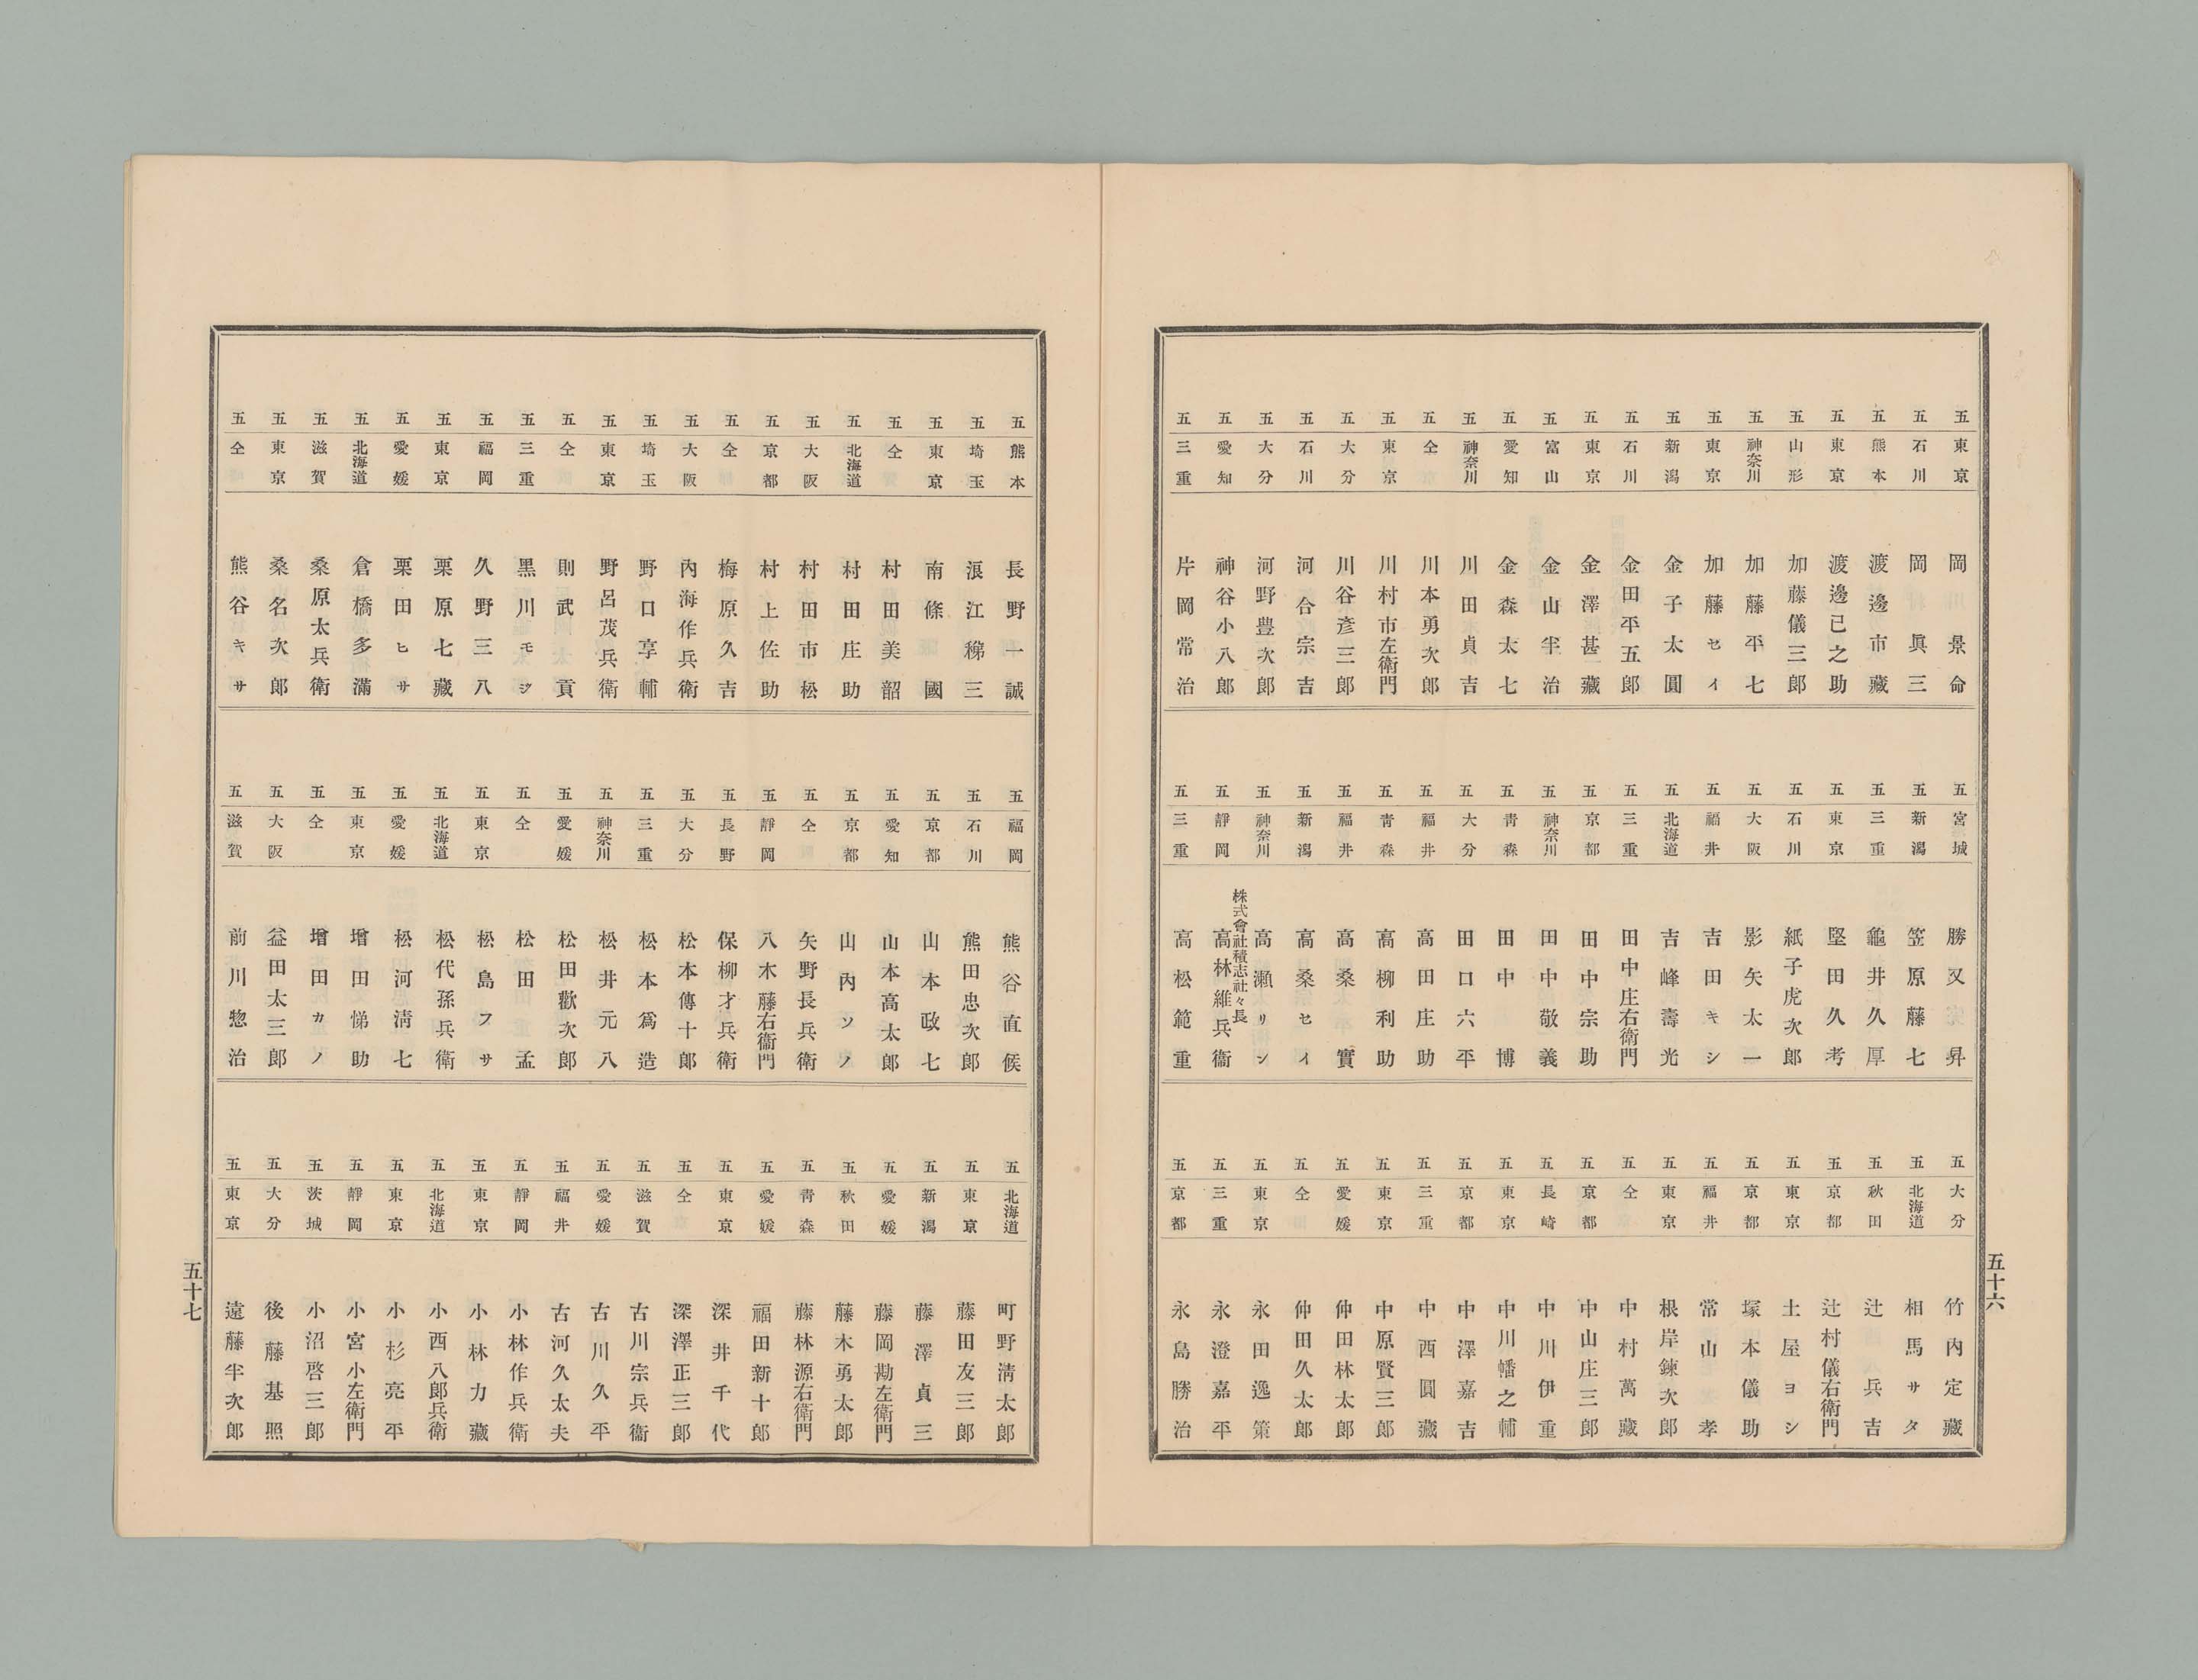 五 東京 岡川景命
五 石川 岡眞三
五 熊本 渡邊市藏
五 東京 渡邊已之助
五 山形 加藤儀三郎
五 神奈川 加藤平七
五 東京 加藤セイ
五 新潟 金子太圓
五 石川 金田平五郎
五 東京 金澤甚藏
五 富山 金山半治
五 愛知 金森太七
五 神奈川 川田貞吉
五 仝 川本勇次郎
五 東京 川村市左衛門
五 大分 川谷彥三郎
五 石川 河合宗吉
五 大分 河野豊次郎
五 愛知 神谷小八郎
五 三重 片岡常治
五 宮城 勝又昇
五 新潟 笠原藤七
五 三重 龜井久厚
五 東京 堅田久考
五 石川 紙子虎次郎
五 大阪 影矢太一
五 福井 吉田キシ
五 北海道 吉峰壽光
五 三重 田中庄右衛門
五 京都 田中宗助
五 神奈川 田中敬義
五 青森 田中博
五 大分 田口六平
五 福井 高田庄助
五 青森 高柳利助
五 福井 高桑實
五 新潟 高桑セイ
五 神奈川 高瀨リン
五 靜岡 株式會社積志社々長 高林維兵衞
五 三重 高松範重
五 大分 竹內定藏
五 北海道 相馬サタ
五 秋田 辻兵吉
五 京都 辻村儀右衛門
五 東京 土屋ヨシ
五 京都 塚本儀助
五 福井 常山孝
五 東京 根岸鍊次郎
五 仝 中村萬藏
五 京都 中山庄三郎
五 長崎 中川伊重
五 東京 中川幡之輔
五 京都 中澤嘉吉
五 三重 中西圓藏
五 東京 中原賢三郎
五 愛媛 仲田林太郎
五 仝 仲田久太郎
五 東京 永田逸策
五 三重 永澄嘉平
五 京都 永島勝治
五十六
五 熊本 長野一誠
五 埼玉 浪江穉三
五 東京 南條國
五 仝 村田美韶
五 北海道 村田庄助
五 大阪 村田市松
五 京都 村上佐助
五 仝 梅原久吉
五 大阪 內海作兵衛
五 埼玉 野口享輔
五 東京 野呂茂兵衛
五 仝 則武貢
五 三重 黑川モジ
五 福岡 久野三八
五 東京 栗原七藏
五 愛媛 栗田ヒサ
五 北海道 倉橋多滿
五 滋賀 桑原太兵衛
五 東京 桑名次郎
五 仝 熊谷キサ
五 福岡 熊谷直候
五 石川 熊田忠次郎
五 京都 山本政七
五 愛知 山本高太郎
五 京都 山內ソノ
五 仝 矢野長兵衛
五 靜岡 八木藤右衞門
五 長野 保柳才兵衛
五 大分 松本傳十郎
五 三重 松本爲造
五 神奈川 松井元八
五 愛媛 松田歡次郎
五 仝 松田孟
五 東京 松島フサ
五 北海道 松代孫兵衛
五 愛媛 松河淸七
五 東京 增田悌助
五 仝 增田カノ
五 大阪 益田太三郎
五 滋賀 前川惣治
五 北海道 町野淸太郎
五 東京 藤田友三郎
五 新潟 藤澤貞三
五 愛媛 藤岡勘左衛門
五 秋田 藤木勇太郎
五 青森 藤林源右衛門
五 愛媛 福田新十郎
五 東京 深井千代
五 仝 深澤正三郎
五 滋賀 古川宗兵衞
五 愛媛 古川久平
五 福井 古河久太夫
五 靜岡 小林作兵衛
五 東京 小林力藏
五 北海道 小西八郎兵衛
五 東京 小杉亮平
五 靜岡 小宮小左衛門
五 茨城 小沼啓三郎
五 大分 後藤基照
五 東京 遠藤半次郎
五十七